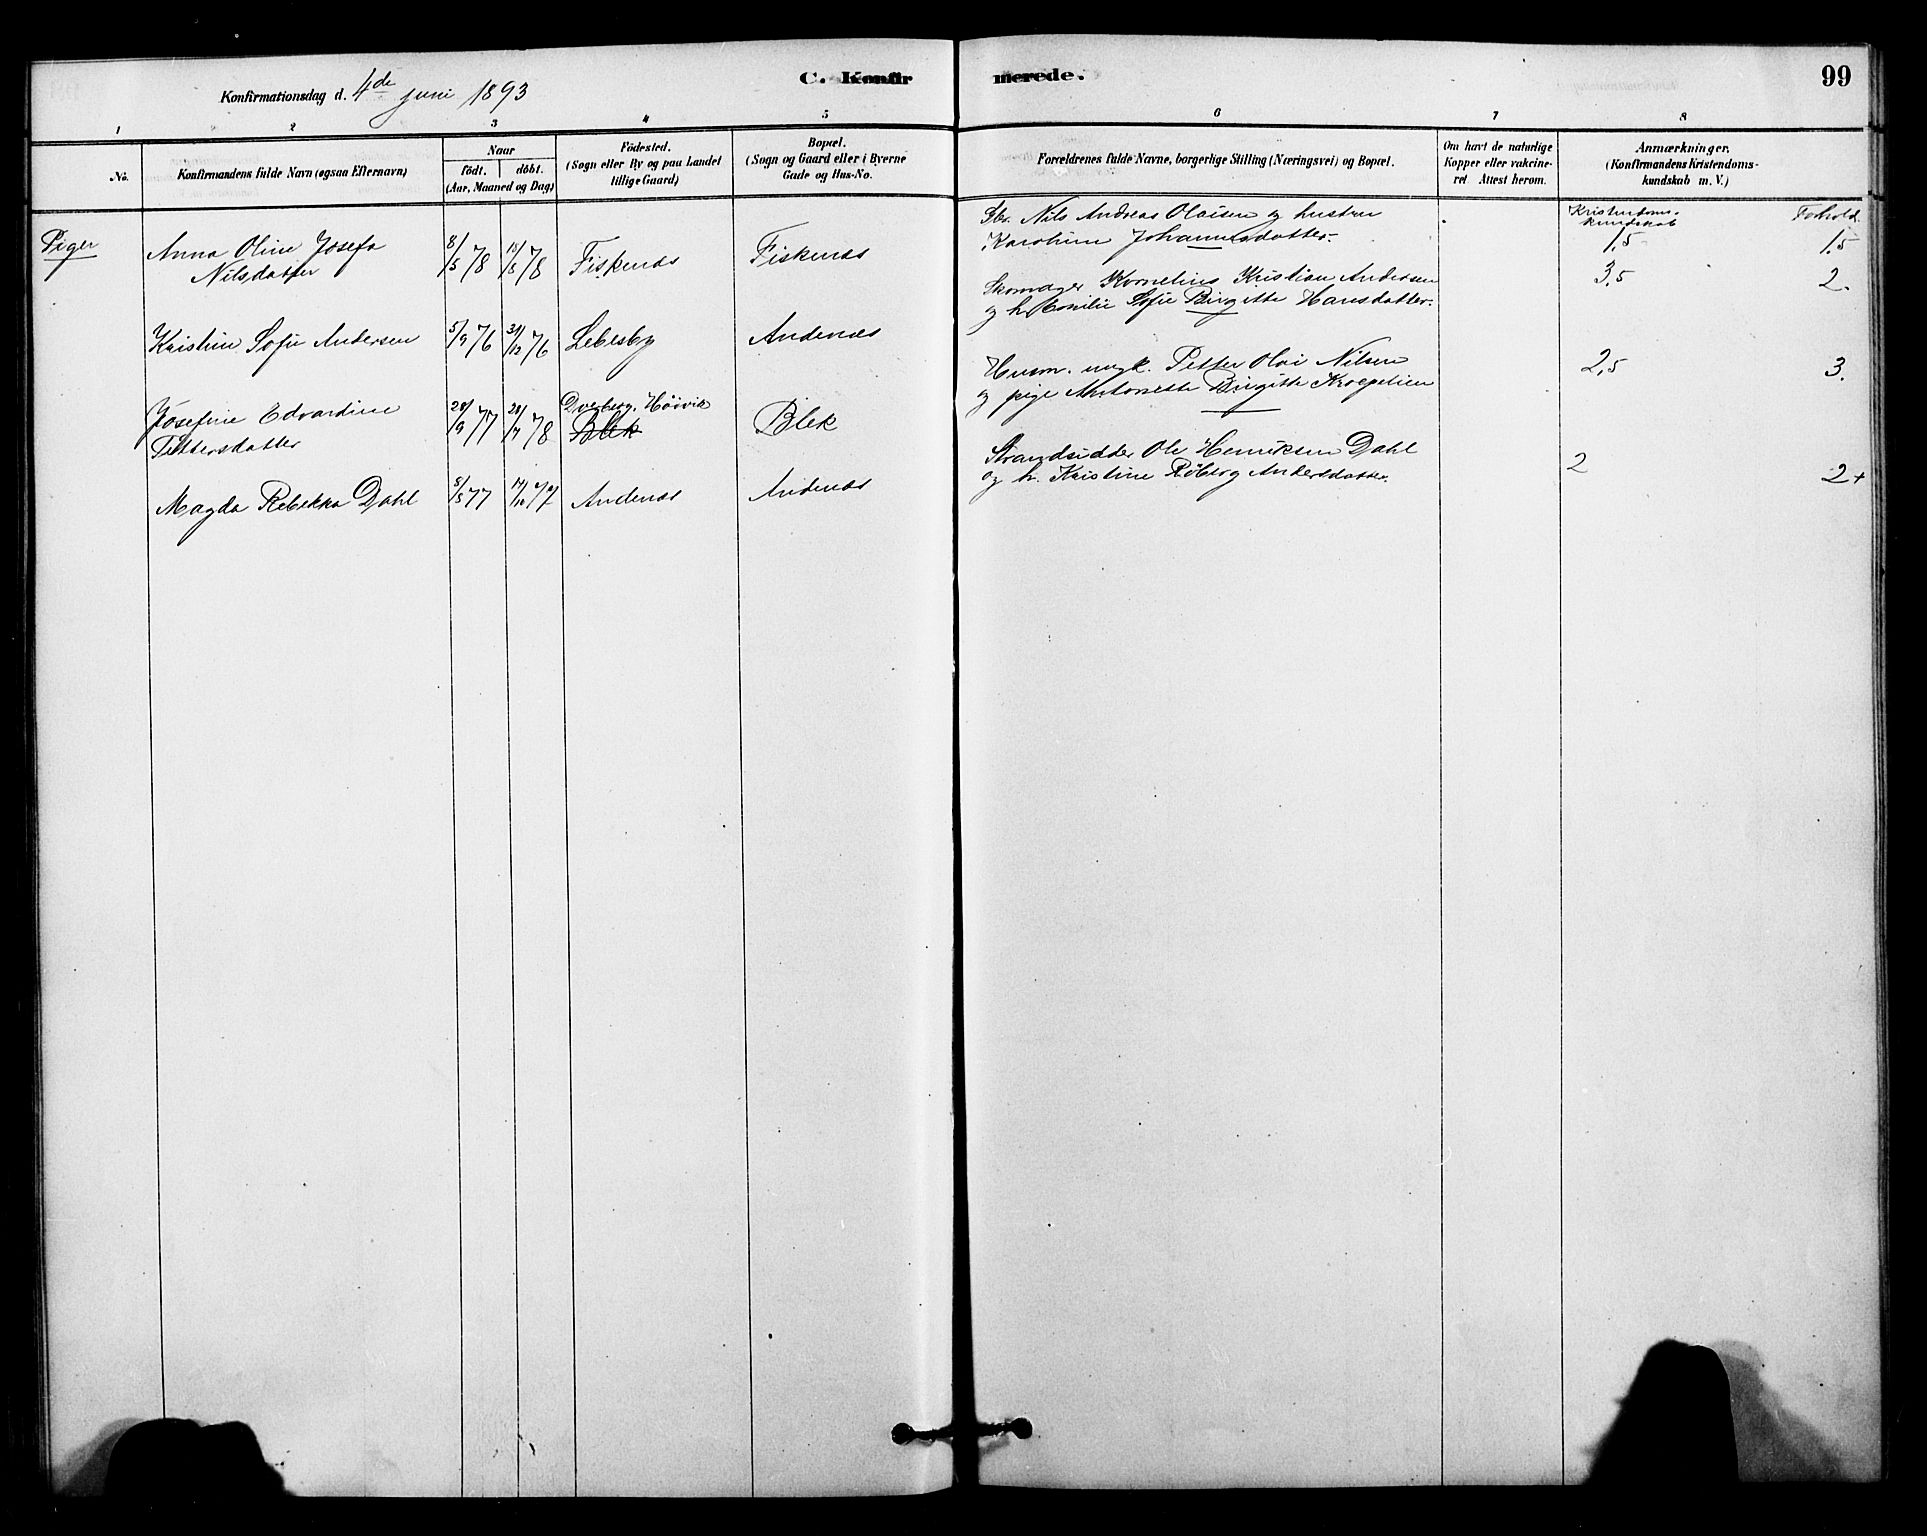 C. Konfirmerede.
99
Konfirmationsdag d. 4de juni 1893
1 2 3 4 5 6 7 8
No.
Konfirmandens fulde Navn (ogsaa Efternavn)
Naar
födt. döbt.
(Aar, Maaned og Dag)
Födested.
(Sogn eller By og paa Landet
tillige Gaard)
Bopæl.
(Sogn og Gaard eller i Byerne
Gade og Hus-No.
Forældrenes fulde Navne, borgerlige Stilling (Næringsvei) og Bopæl.
Om havt de naturlige
Kopper eller vakcine-
ret Attest herom.
Anmærkninger.
(Konfirmandens Kristendoms-
kundskab m. V.)
Kristendoms-
kundskab
Forhold.
Piger
Anna Oline Josefa
Nilsdatter
8/5 78
78
Fiskenæs
Fiskenæs
Nils Andreas Olaisen og hustru
Karoline Johannesdatter.
1,5
1,5
Kristine Sofie Andersen
5/9 76
31/12 76
Lebesby
Andenæs
Skomager Kornelius Kristian Andersen
og h. Emilie Sofie Birgitte Hansdatter.
3,5
2.
Josefine Edvardine
Pettersdatter
28/9 77
78
Dverberg, Höivik
Blek
Blek
Husm. ungk. Petter Olai Nilsen
og pige Antonette Birgitte Kræpelien
2,5
3.
Magda Rebekka Dahl
5/5 77
77
Andenæs
Andenæs
Strandsidder Ole Henriksen Dahl
og h. Kristine Röberg Andersdatter.
2
2+